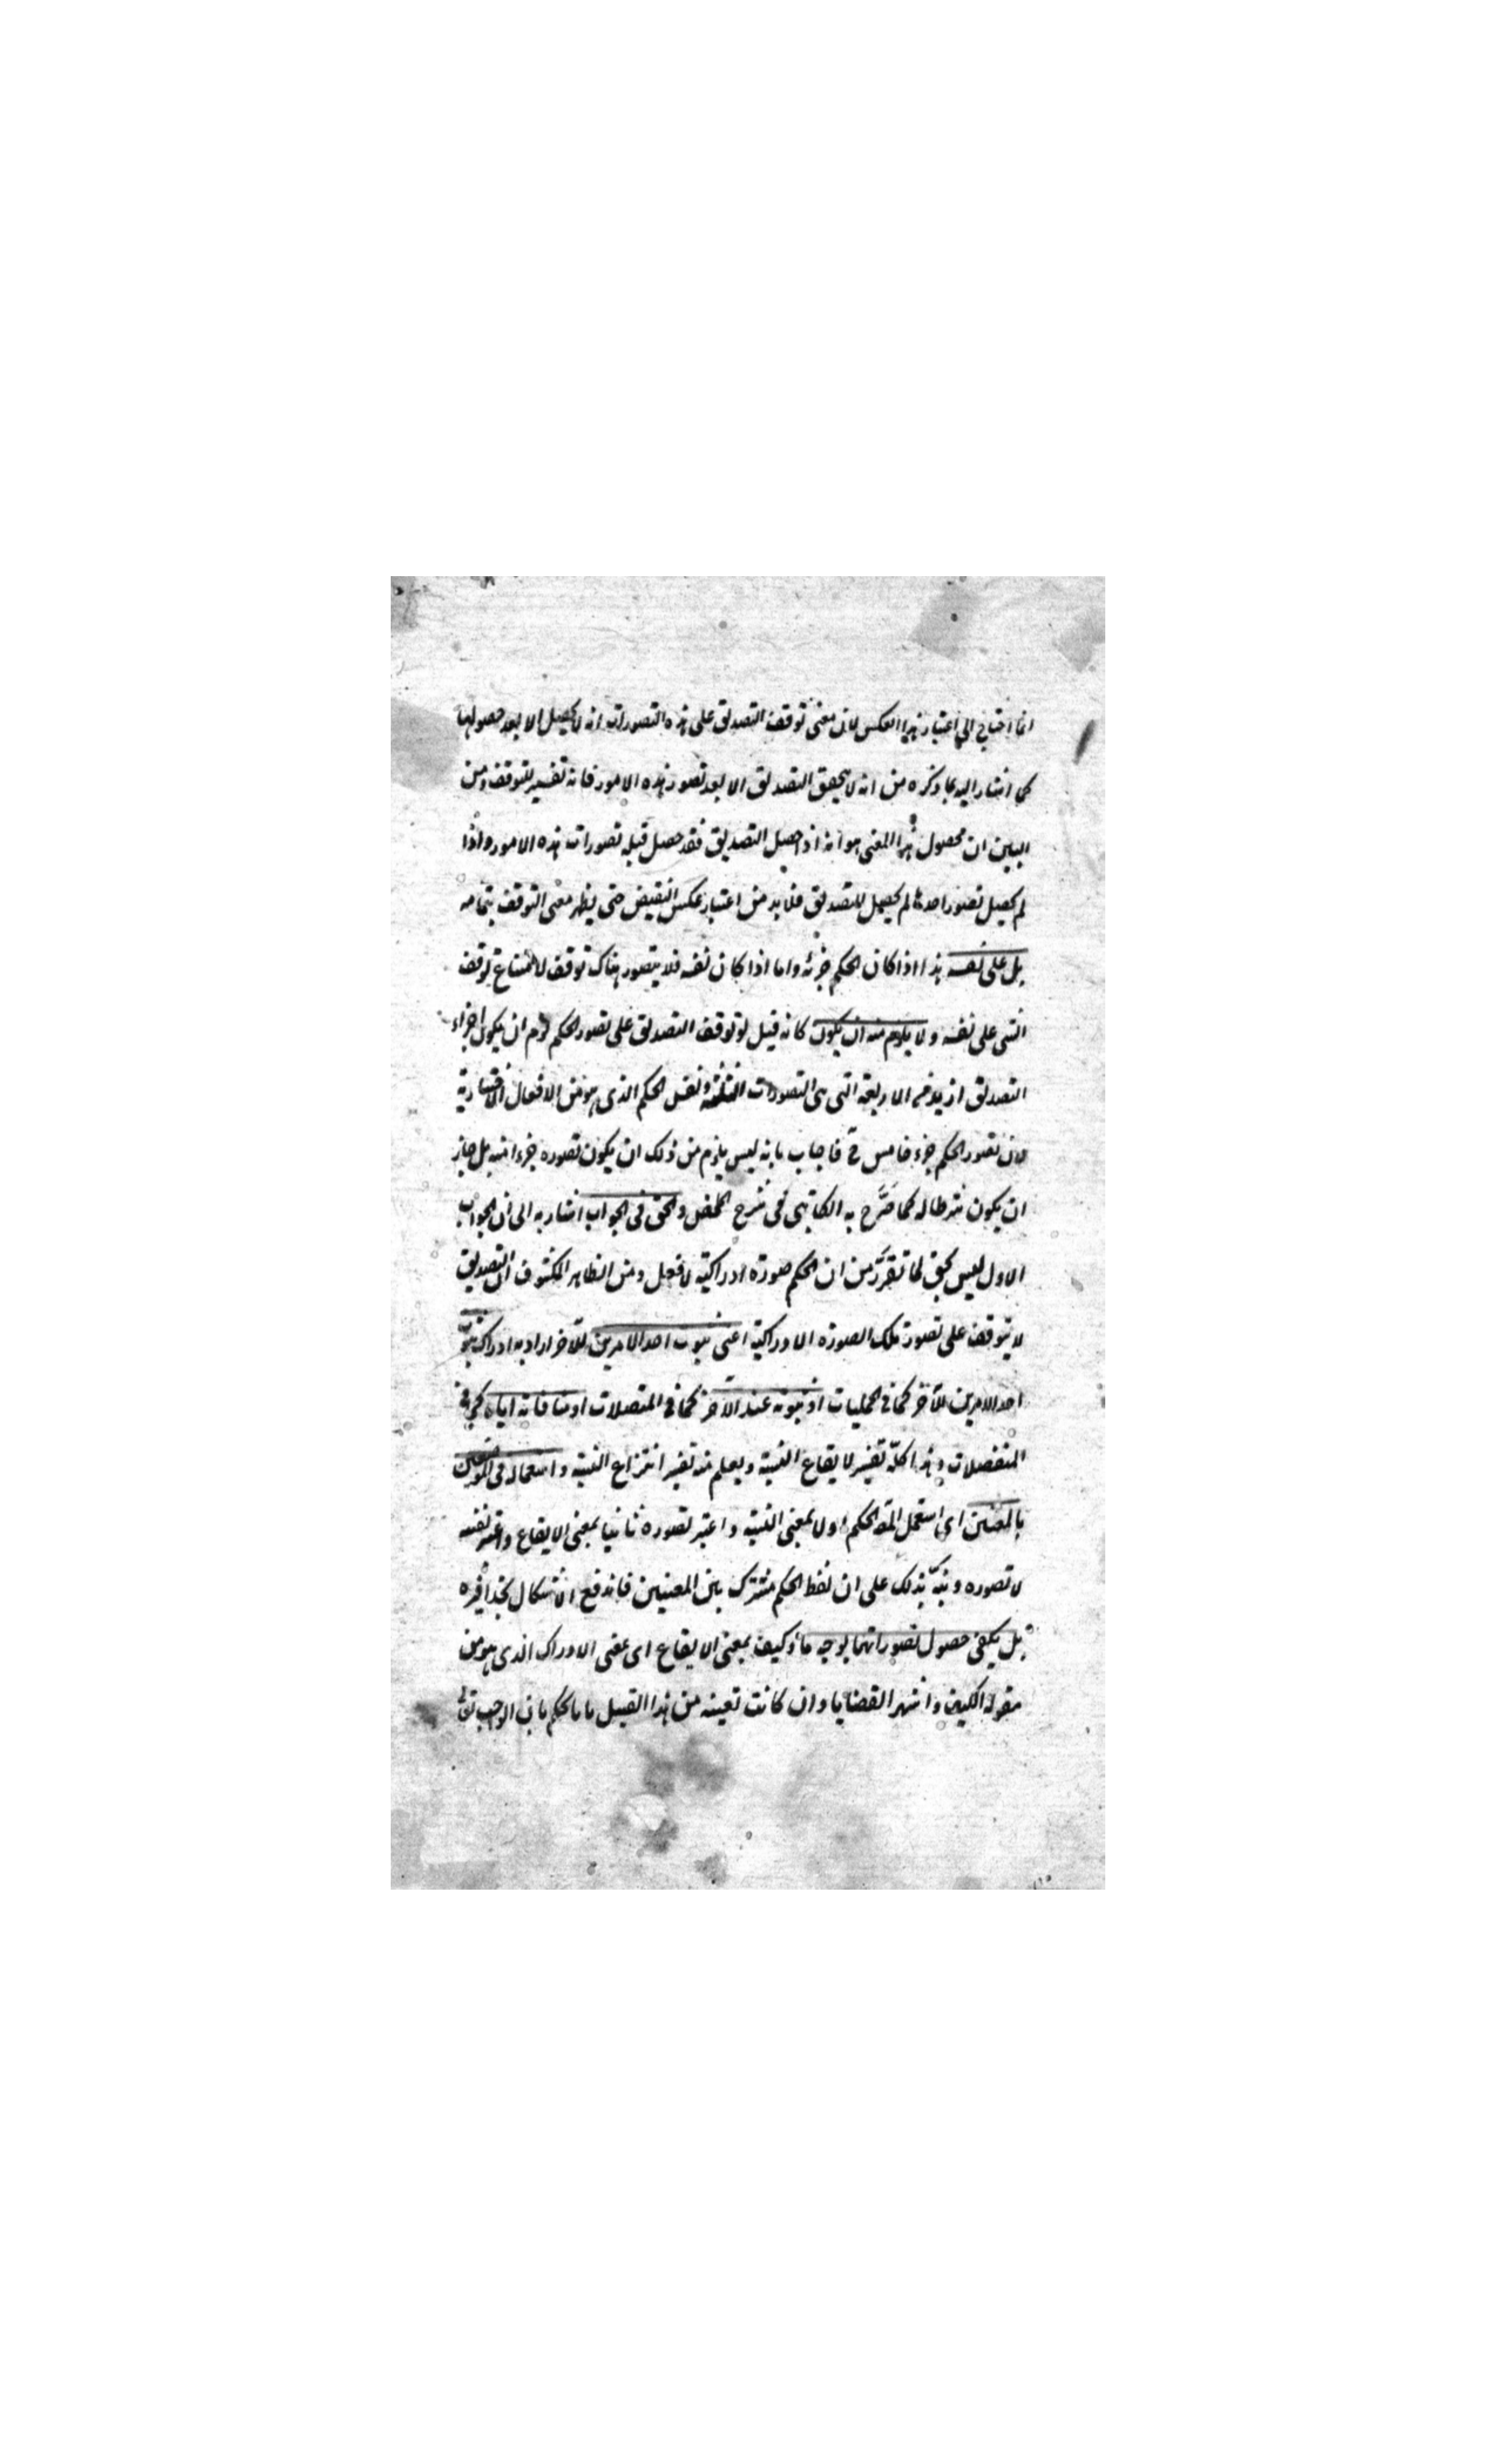 انما احتاج الى اعتبار هذا العكس لان معنى توقف التصديق على هذه التصورات انه لا يحصل الا بعد حصولها
كما اشار اليه بما ذكره من انه لا يتحقق التصديق الا بعد تصور هذه الامور فانه تفسير للتوقف ومن
البين ان محصول هذا المعنى هو انه اذا حصل التصديق فقد حصل قبله تصورات هذه الامور واذا
لم يحصل تصور احدها لم يحصل التصديق فلا بد من اعتبار عكس النقيض حتى يظهر معنى التوقف بتمامه
بل على نفسه هذا اذا كان الحكم جزئه واما اذا كان نفسه فلا يتصور هناك توقف لامتناع توقف
الشى على نفسه ولا يلزم منه ان يكون كانه قيل لو توقف التصديق على تصور الحكم لزم ان يكون اجزاء
التصديق ازيد من الاربعة التى هى التصورات الثلثة ونفس الحكم الذى هو من الافعال الاختيارية
لان تصور الحكم جزء خامس ح فاجاب بانه ليس يلزم من ذلك ان يكون تصوره جزءا منه بل جاز
ان يكون شرطا له كما صرَّح به الكاتبى فى شرح الملخص والحق فى الجواب اشار به الى ان الجواب
الاول ليس بحق لما تقرَّر من ان الحكم صورة ادراكية لا فعل ومن الظاهر المكشوف ان التصديق
لا يتوقف على تصور تلك الصورة الادراكية اعنى ثبوت احد الامرين للآخر اراد به ادراك ثبوت
احد الامرين للآخر كما فى الحمليات او ثبوته عند الآخر كما فى المتصلات او منافاته اياه كما فى
المنفصلات وهذا كلّه تفسير لايقاع النسبة ويعلم منه تفسير انتزاع النسبة واستعماله فى الموضعين
بالمعنيين اى استعمل المص الحكم اولا بمعنى النسبة واعتبر تصوره ثانيا بمعنى الايقاع واعتبر نفسه
لا تصوره ونبّه بذلك على ان لفظ الحكم مشترك بين المعنيين فاندفع الاشكال بحذافيره
بل يكفى حصول تصوراتهما بوجه ما وكيف بمعنى الايقاع اى بمعنى الادراك الذى هو من
مقولة الكيف واشهر القضايا وان كانت نفسه من هذا القبيل فالحكم بان الواجب تعالى